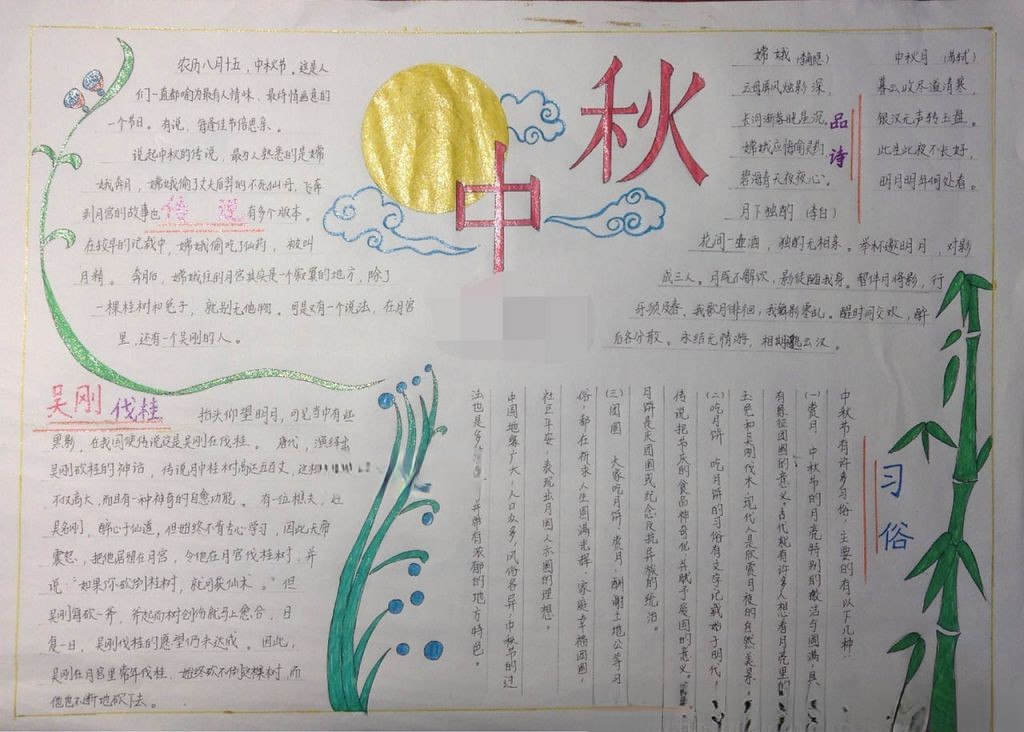 中秋
农历八月十五,中秋节。这是人
们一直都喻为最有人情味、最诗情画意的
一个节日。有说,每逢佳节倍思亲。
说起中秋的传说,最为人熟悉的是嫦
娥奔月,嫦娥偷了丈夫后羿的不死仙丹,飞奔
到月宫的故事也
传说
有多个版本。
在较早的记载中,嫦娥偷吃了仙药,被叫
月精。奔月后,嫦娥住的月宫其实是一个寂寞的地方,除了
一棵桂树和兔子,就别无他物。可是又有一个说法,在月宫
里,还有一个吴刚的人。
嫦娥
云母屏风烛影深,
长河渐落晓星沉。
嫦娥应悔偷灵药,
碧海青天夜夜心。
品诗
中秋月 (苏轼)
暮云收尽溢清寒,
银汉无声转玉盘。
此生此夜不长好,
明月明年何处看。
月下独酌 (李白)
花间一壶酒,独酌无相亲。举杯邀明月,对影
成三人。月既不解饮,影徒随我身。暂伴月将影,行
乐须及春。我歌月徘徊,我舞影零乱。醒时同交欢,醉
后各分散。永结无情游,相期邈云汉。
吴刚伐桂
抬头仰望明月,可见当中有些
黑影,在我国便传说这是吴刚在伐桂。唐代,演绎出
吴刚砍桂的神话,传说月中桂树高达五百丈,这
不仅高大,而且有一种神奇的自愈功能。有一位樵夫,姓
吴名刚,醉心于仙道,但始终不肯专心学习,因此天帝
震怒,把他居留在月宫,令他在月宫伐桂树,并
说:“如果你砍倒桂树,就可获仙术。”但
吴刚每砍一斧,斧起而树创伤就马上愈合,日
复一日,吴刚伐桂的愿望仍未达成。因此,
吴刚在月宫里常年伐桂,始终砍不倒这棵树,而
他也不断地砍下去。
习俗
中秋节有许多习俗,主要的有以下几种:
(一)赏月,中秋节的月亮特别的皎洁与圆满,具
有象征团圆的意义。古代就有许多人想看月亮里的
玉兔和吴刚伐木,现代是欣赏月夜的自然美景。
(二)吃月饼 吃月饼的习俗有文字记载始于明代,
传说把节庆的食品神奇化,并赋予爱国的意义。
月饼是庆团圆或纪念反抗异族的统治。
(三)团圆 大家吃月饼,赏月,酬谢土地公等习
俗,都在祈求人生圆满光辉,家庭幸福团圆,
社区平安,表现出月圆人亦圆的理想。
中国地缘广大,人口众多,风俗各异,中秋节的过
法也是多
并带有浓郁的地方特色。